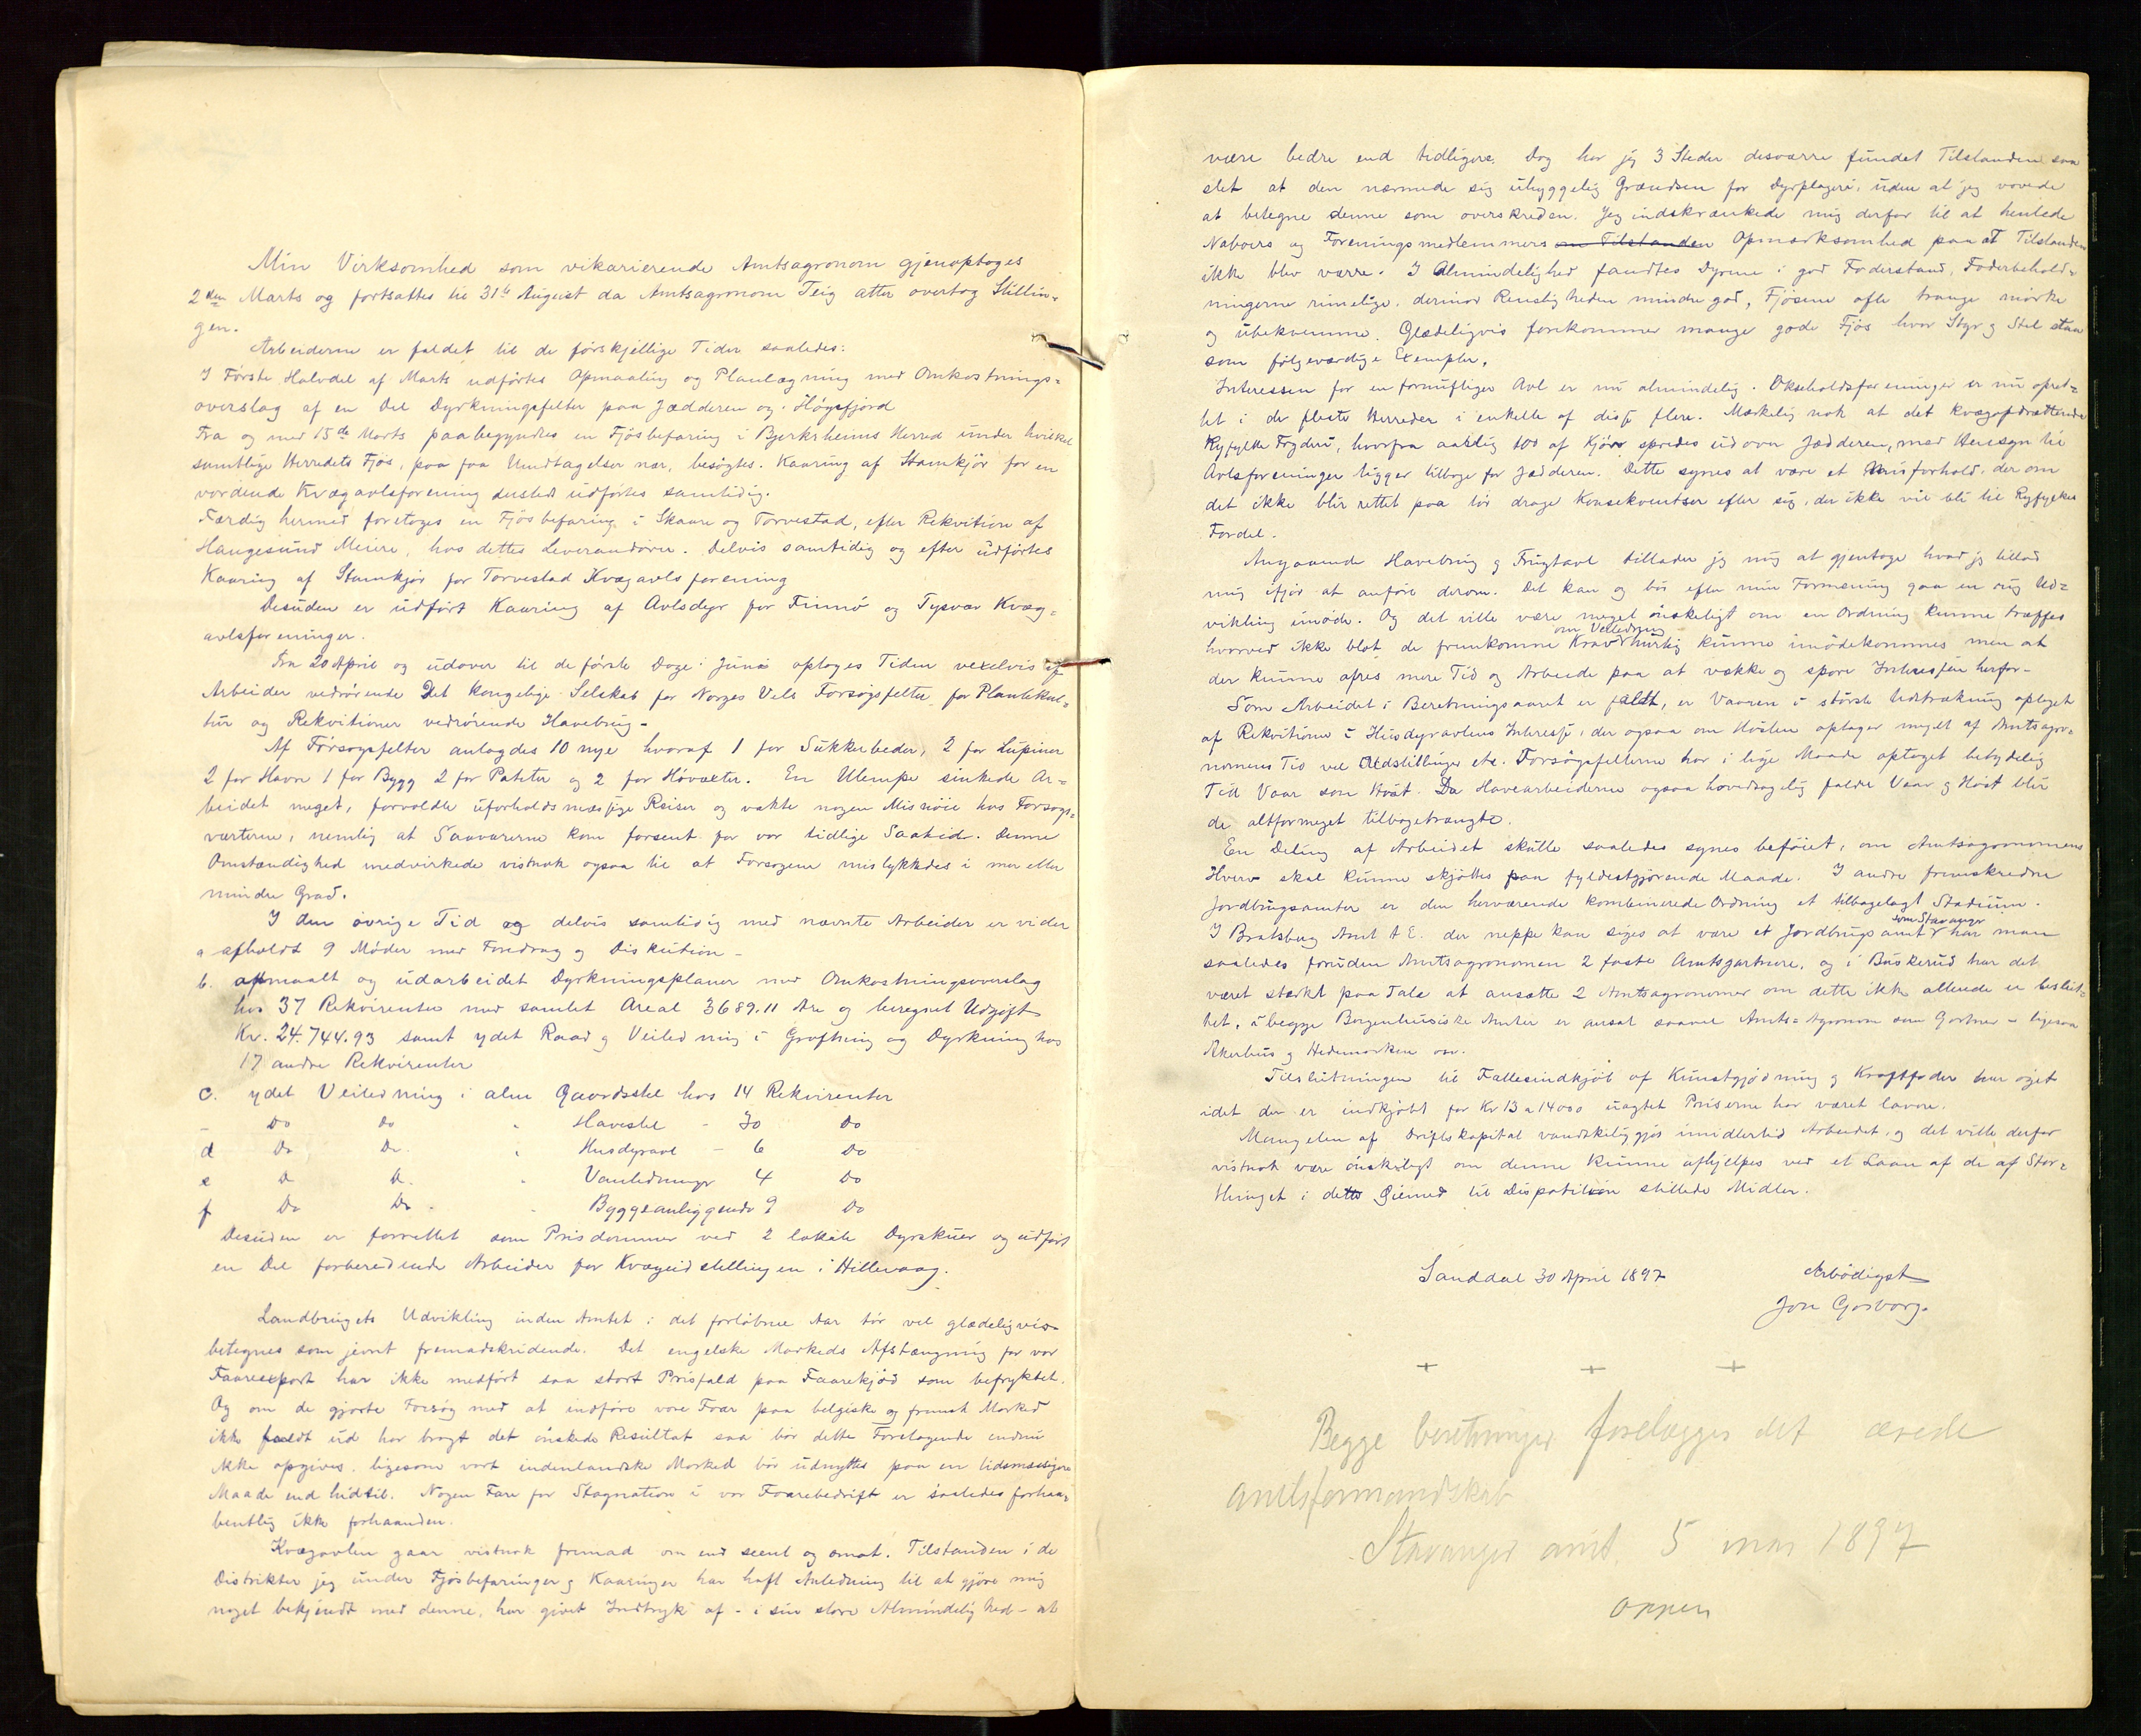 Min Virksomhed som vikarierende Amtsagronom gjenoptoges
2den Marts og fortsattes til 31te August da Amtsagronom Teig atter overtog Stillin=
gen.
Arbeiderne er faldet til de forskjellige Tider saaledes:
I Første Halvdel af Marts udførtes Opmaaling og Planlægning med Omkostnings=
overslag af en Del Dyrkningsfelter paa Jædderen og i Høgsfjord
Fra og med 15de Marts paabegyndtes en Fjøsbefaring i Bjerkrheims Herred under hvilken
samtlige Herredets Fjøs, paa faa Undtagelser nær, besøgtes. Kaaring af Stamkjør for en
vordende Kvægavlsforening dersteds udførtes samtidig.
Færdig hermed foretoges en Fjøsbefaring i Skaare og Torvestad, efter Rekvition af
Haugesund Meieri, hos dettes Leverandører. Delvis samtidig og efter udførtes
Kaaring af Stamkjør for Torvestad Kvægavlsforening
Desuden er udført Kaaring af Avlsdyr for Finnø og Tysvær Kvæg=
avlsforeninger.
Fra 20 April og udover til de første Dage i Juni optoges Tiden vexelvis af
Arbeider vedrørende Det kongelige Selskab for Norges Vels Forsøgsfelter for Plantekul=
tur og Rekvitioner vedrørende Havebrug.
Af Forsøgsfelter anlagdes 10 nye hvoraf 1 for Sukkerbeder, 2 for Lupiner
2 for Havre 1 for Bygg 2 for Poteter og 2 for Høvæxter. En Ulempe sinkede Ar=
beidet meget, forvoldte uforholdsmæssige Reiser og vakte nogen Misnøie hos Forsøgs=
værterne, nemlig at Saavarerne kom forsent for vor tidlige Saatid. Denne
Omstændighed medvirkede vistnok ogsaa til at Forsøgene mislykkedes i mer eller
mindre Grad.
I den øvrige Tid og delvis samtidig med nævnte Arbeider er vider
a afholdt 9 Møder med Foredrag og Diskution -
b. opmaalt og udarbeidet Dyrkningsplaner med Omkostningsoverslag
hos 37 Rekvirenter med samlet Areal 3689.11 Are og beregnet Udgift
Kr. 24.744.93 samt ydet Raad og Veiledning i Grøftning og Dyrkning hos
17 andre Rekvirenter
c. ydet Veiledning i alm Gaardsstel hos 14 Rekvirenter
- Do Do " Havestel - 30 Do
d Do Do. " Husdyravl - 6 Do
e D D. " Vanledninger 4 Do
f Do Do. " Byggeanliggende 9 Do
Desuden er forrettet som Prisdommer ved 2 lokale Dyrskuer og udført
en Del forberedende Arbeider for Kvægudstillingen i Hillevaag.
Landbrugets Udvikling inden Amtet i det forløbne Aar tør vel glædeligvis
betegnes som jevnt fremadskridende. Det engelske Markeds Afstængning for vor
Faareexport har ikke medført saa stort Prisfald paa Faarekjød som befryktet.
Og om de gjorte Forsøg med at indføre vore Faar paa belgiske og fransk Marked
ikke faldt ud har bragt det ønskede Resultat saa bør dette Foretagende endnu
ikke opgives, ligesom vort indenlandske Marked bør udnyttes paa en tidsmæssigere
Maade end hidtil. Nogen Fare for Stagnation i vor Faarebedrift er saaledes forhaa=
bentlig ikke forhaanden.
Kvægavlen gaar vistnok fremad om end seent og smat. Tilstanden i de
Distrikter jeg under Fjøsbefaringer og Kaaringer har haft Anledning til at gjøre mig
noget bekjendt med denne, har givet Indtryk af - i sin store Almindelighed - at
være bedre end tidligere. Dog har jeg 3 Steder desværre fundet Tilstanden saa
slet at den nærmede sig uhyggelig Grændsen for Dyrplageri, uden at jeg vovede
at betegne denne som overskreden. Jeg indskrænkede mig derfor til at henlede
Naboers og Foreningsmedlemmers om Tilstanden Opmærksomhed paa at Tilstanden
ikke blev værre. I Almindelighed fandtes Dyrene i god Foderstand, Foderbehold=
ningerne rimelige, derimod Renslig heden mindre god, Fjøsene ofte trange mørke
og ubekvemme. Glædeligvis forekommer mange gode Fjøs hvor Styr og Stel staa
som følgeværdige Exempler.
Interessen for en fornuftigen Avl er nu almindelig. Okseholdsforeninger er nu opret=
tet i de fleste Herreder i enkelte af disse flere. Mærkelig nok at det kvægopdrættende
Ryfylke Fogderi, hvorfra aarlig 100 af Kjør spredes udover Jædderen, med Hensyn til
Avlsforeninger ligger tilbage for Jædderen. Dette synes at være et Misforhold, der om
det ikke blir rettet paa tør drage Konsekventser efter sig, der ikke vil bli til Ryfylkes
Fordel.
Angaaende Havebrug og Frugtavl tillader jeg mig at gjentage hvad jeg tillod
mig ifjor at anføre derom. Det kan og bør efter min Formening gaa en rig Ud=
vikling imøde. Og det ville være meget ønskeligt om en Ordning kunne træffes
hvorved ikke blot de fremkomne Krav om Veiledning hurtig kunne imødekommes men at
der kunne ofres mere Tid og Arbeide paa at vække og spore Interessen herfor -
Som Arbeidet i Beretningsaaret er faldt, er Vaaren i største Udstrækning optaget
af Rekvitioner i Husdyravlens Interesse, der ogsaa om Høsten optager meget af Amtsagro=
nomens Tid ved Udstillinger etc. Forsøgsfelterne har i lige Maade optaget betydelig
Tid Vaar som Høst. Da Havearbeiderne ogsaa hovedsagelig falde Vaar og Høst blir
de altformeget tilbagetrængte.
En Deling af Arbeidet skulle saaledes synes beføiet, om Amtsagronomens
Hverv skal kunne skjøttes paa fyldestgjørende Maade. I andre fremskredne
Jordbrugsamter er den herværende kombinerede Ordning et tilbagelagt Stadium.
I Bratsberg Amt t E. der neppe kan siges at være et Jordbrugsamt som Stavanger har man
saaledes foruden Amtsagronomen 2 faste Amtsgartnere, og i Buskerud har det
været stærkt paa Tale at ansætte 2 Amtsagronomer om dette ikke allerede er beslut=
tet, i begge Bergenhusiske Amter er ansat saavel Amts=Agronom som Gartner - ligesaa
Akerhus og Hedemarken osv.
Tilslutningen til Fællesindkjøb af Kunstgjødning og Kraftfoder har øget
idet der er indkjøbt for Kr 13 a 14000 uagtet Priserne har været lavere.
Mangelen af Driftskapital vanskeliggjør imidlertid Arbeidet, og det ville derfor
vistnok være ønskeligt om denne kunne afhjelpes ved et Laan af de af Stor=
thinget i dette Øiemed til Disposition stillede Midler.
Sanddal 30 April 1897
Ærbødigst
Jon Gjosborg.
+ + +
Begge beretninger forelægges det ærede
amtsformandskab
Stavanger amt, 5 mai 1897